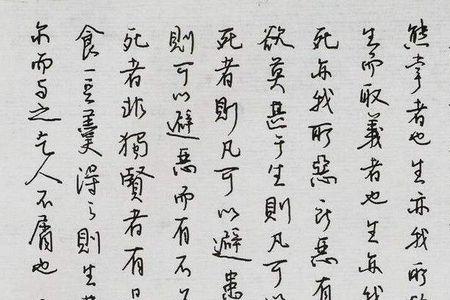 熊掌者也生亦我所
生而取義者也生亦我
死亦我所惡所惡有
欲莫甚于生則凡可以
死者則凡可以避患
則可以避患而有不
死者非獨賢者有是
食一豆羹得之則生
尔而与之乞人不屑也